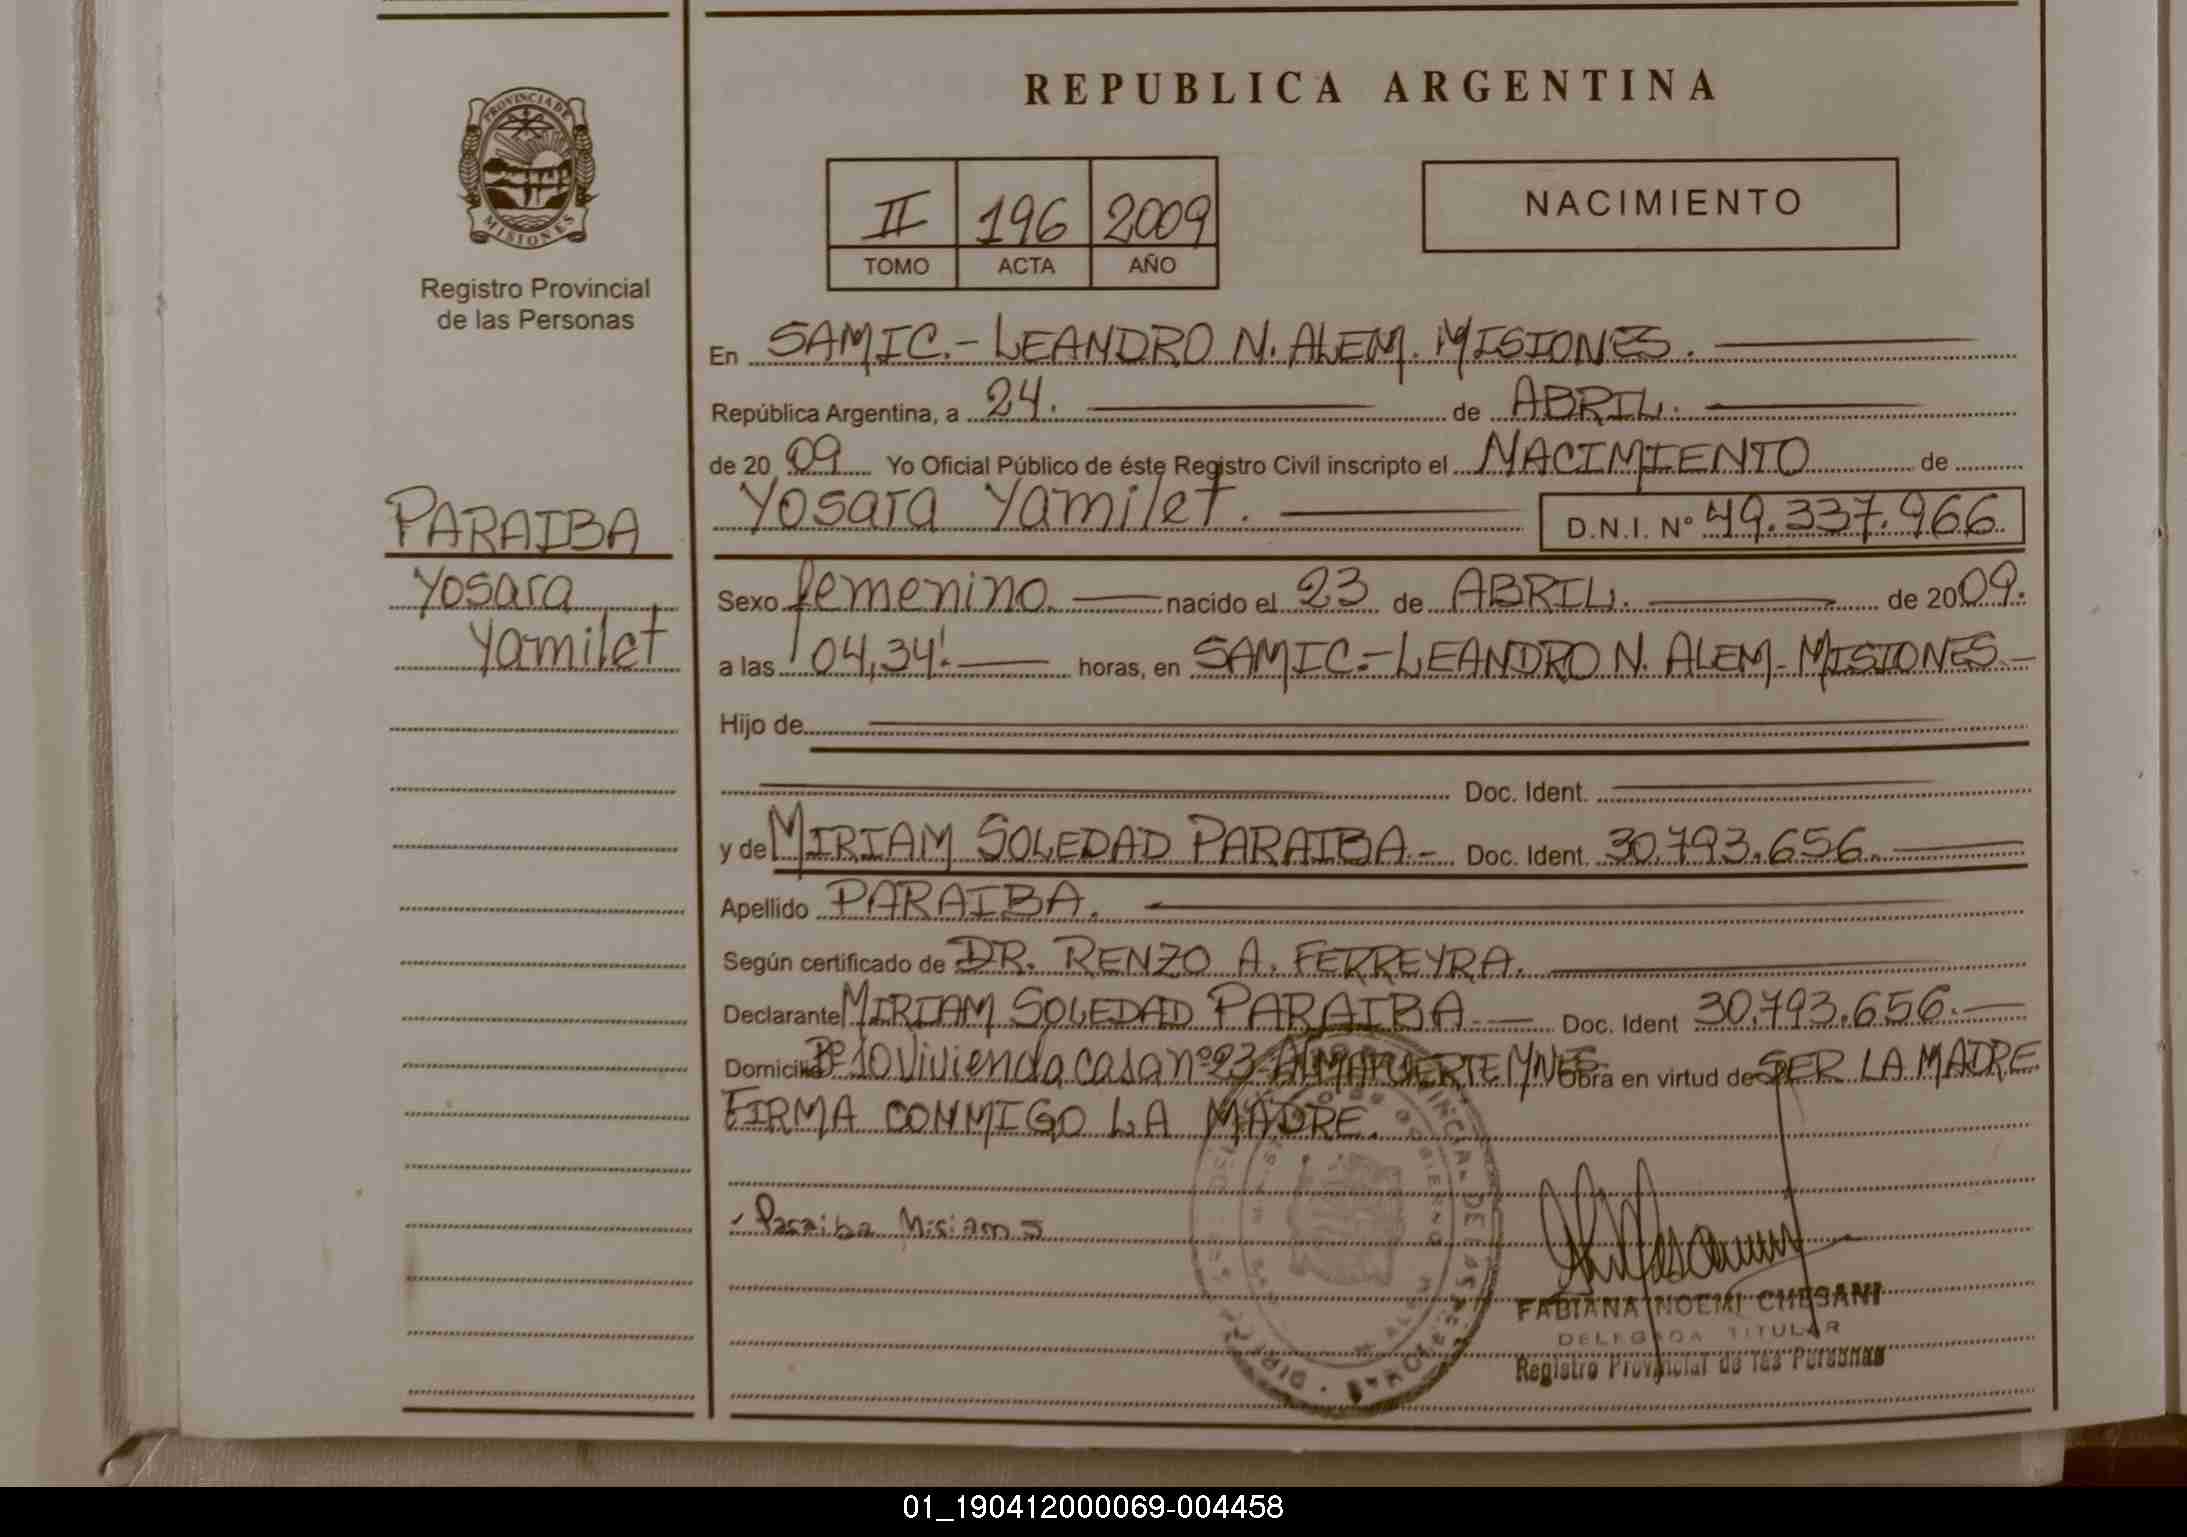 REPUBLICA ARGENTINA
PROVINCIA DE
MISIONES
Registro Provincial
de las Personas
II 196 2009
TOMO ACTA AÑO
NACIMIENTO
En SAMIC.- LEANDRO N. ALEM. MISIONES.
República Argentina, a 24. de ABRIL.
de 2009 Yo Oficial Público de éste Registro Civil inscripto el NACIMIENTO de
PARAIBA
Yosara Yamilet. D.N.I. Nº 49.337.966
Yosara
Sexo femenino nacido el 23 de ABRIL. de 2009.
Yamilet
a las 04,34'. horas, en SAMIC.- LEANDRO N. ALEM. MISIONES.-
Hijo de
Doc. Ident.
y de MIRIAM SOLEDAD PARAIBA.- Doc. Ident. 30.793.656.
Apellido PARAIBA.
Según certificado de DR. RENZO A. FERREYRA.
Declarante MIRIAM SOLEDAD PARAIBA Doc. Ident 30.793.656.
Domicilio Bº 10 Vivienda casa nº 23 ALMAFUERTE MNES Obra en virtud de SER LA MADRE.
FIRMA CONMIGO LA MADRE.
Paraiba Miriam S
FABIANA NOEMI CHESANI
DELEGADA TITULAR
Registro Provincial de las Personas
01_190412000069-004458